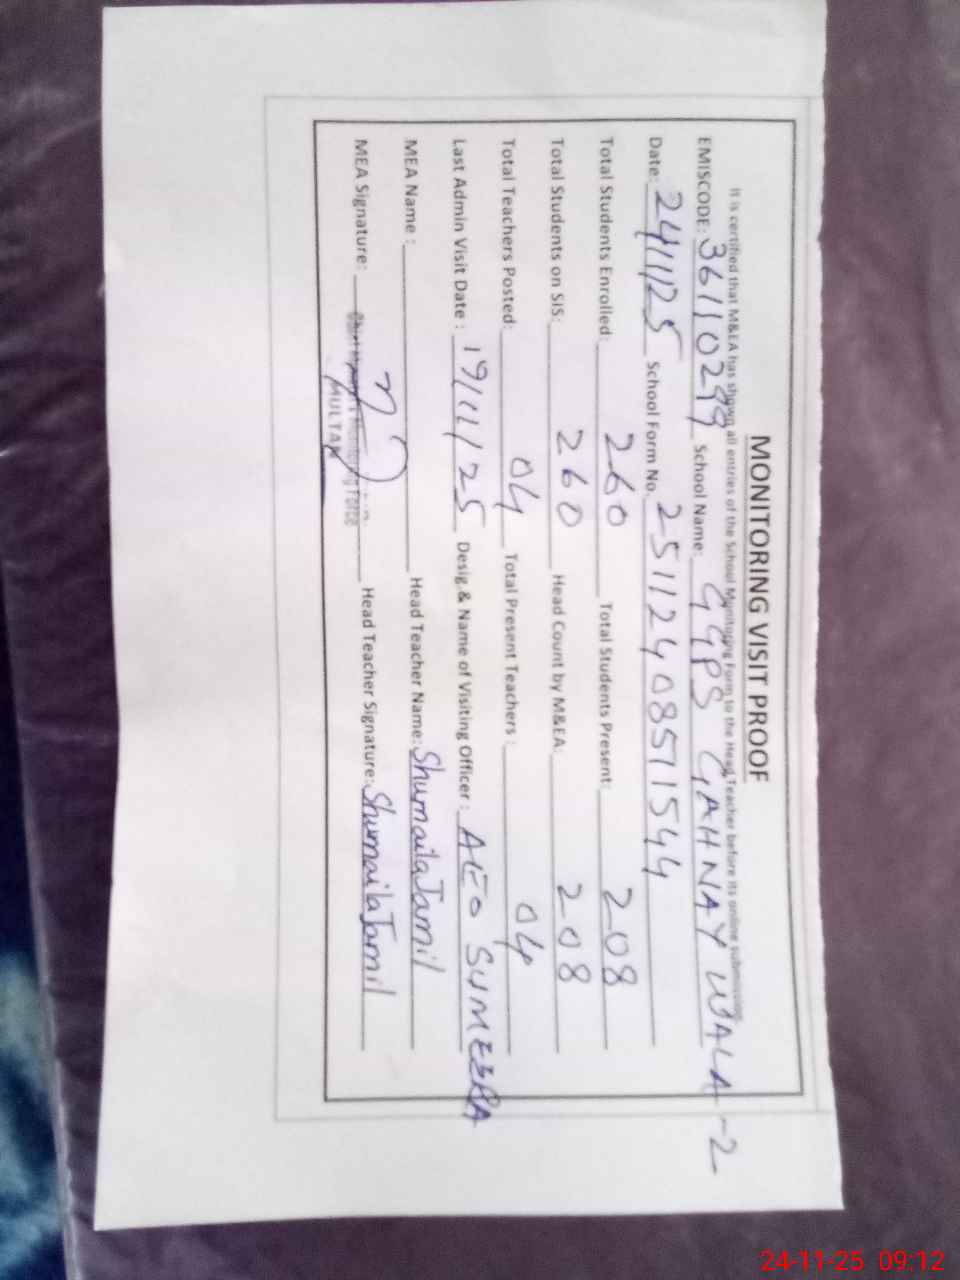 MONITORING VISIT PROOF
It is certified that M&EA has shown all entries of the School Monitoring Form to the Head Teacher before its online submission
EMISCODE: 36110299 School Name: GGPS GAHNAY WALA -2
Date: 24/11/25 School Form No. 2511240857 1544
Total Students Enrolled: 260 Total Students Present: 208
Total Students on SIS: 260 Head Count by M&EA: 208
Total Teachers Posted: 04 Total Present Teachers : 04
Last Admin Visit Date : 19/11/25 Desig & Name of Visiting Officer : AEO SUMERA
MEA Name : Head Teacher Name: Shumaila Jamil
MEA Signature: Head Teacher Signature: Shumaila Jamil
Monitoring Force
MULTAN
24-11-25 09:12